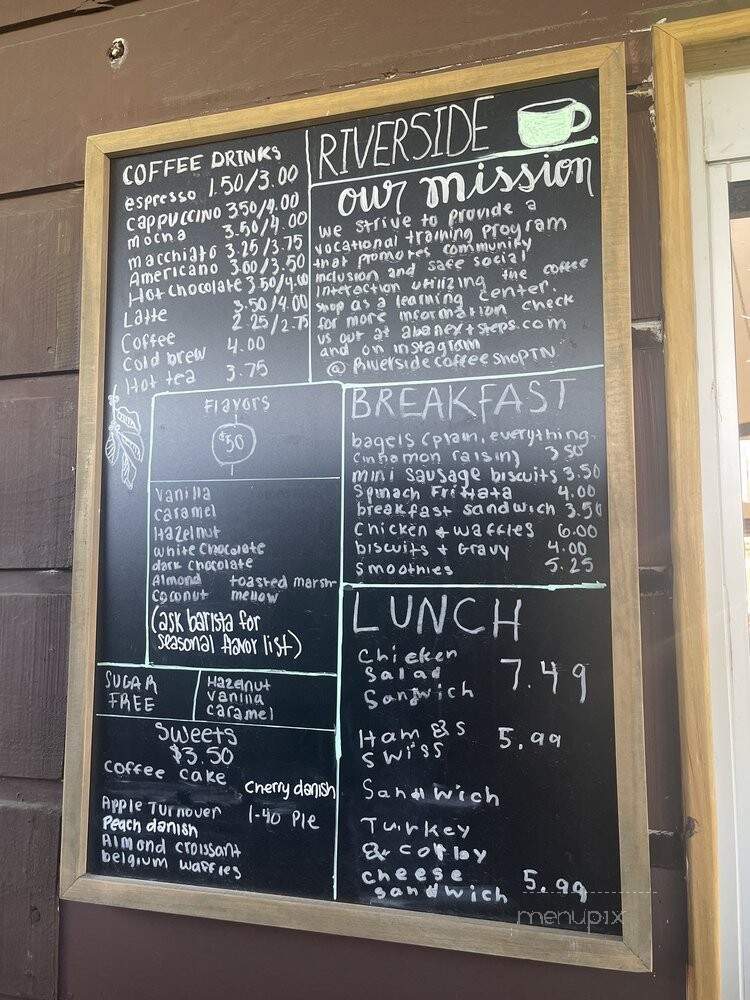 COFFEE DRINKS
espresso 1.50/3.00
cappuccino 3.50/4.00
mocha 3.50/4.00
macchiato 3.25/3.75
Americano 3.00/3.50
Hot chocolate 3.50/4.00
Latte 3.50/4.00
Coffee 2.25/2.75
Cold brew 4.00
Hot tea 3.75
RIVERSIDE
our mission
we strive to provide a
vocational training program
that promotes community
inclusion and safe social
interaction utilizing the coffee
shop as a learning center.
for more information check
us out at abanextsteps.com
and on instagram
@ RiversidecoffeeshopTN
Flavors
$50
vanilla
caramel
Hazelnut
white chocolate
dark chocolate
Almond toasted marsh-
Coconut mellow
(ask barista for
seasonal flavor list)
SUGAR
FREE
Hazelnut
vanilla
caramel
Sweets
$3.50
coffee cake
cherry danish
Apple Turnover
1-40 Pie
Peach danish
Almond croissant
belgium waffles
BREAKFAST
bagels (plain, everything
cinnamon raisin) 3.50
mini sausage biscuits 3.50
Spinach Frittata 4.00
breakfast sandwich 3.50
Chicken & waffles 6.00
biscuits & Gravy 4.00
Smoothies 5.25
LUNCH
Chicken
Salad
Sandwich 7.49
Ham & S
Swiss 5.99
Sandwich
Turkey
& colby
cheese
sandwich 5.99
menupix